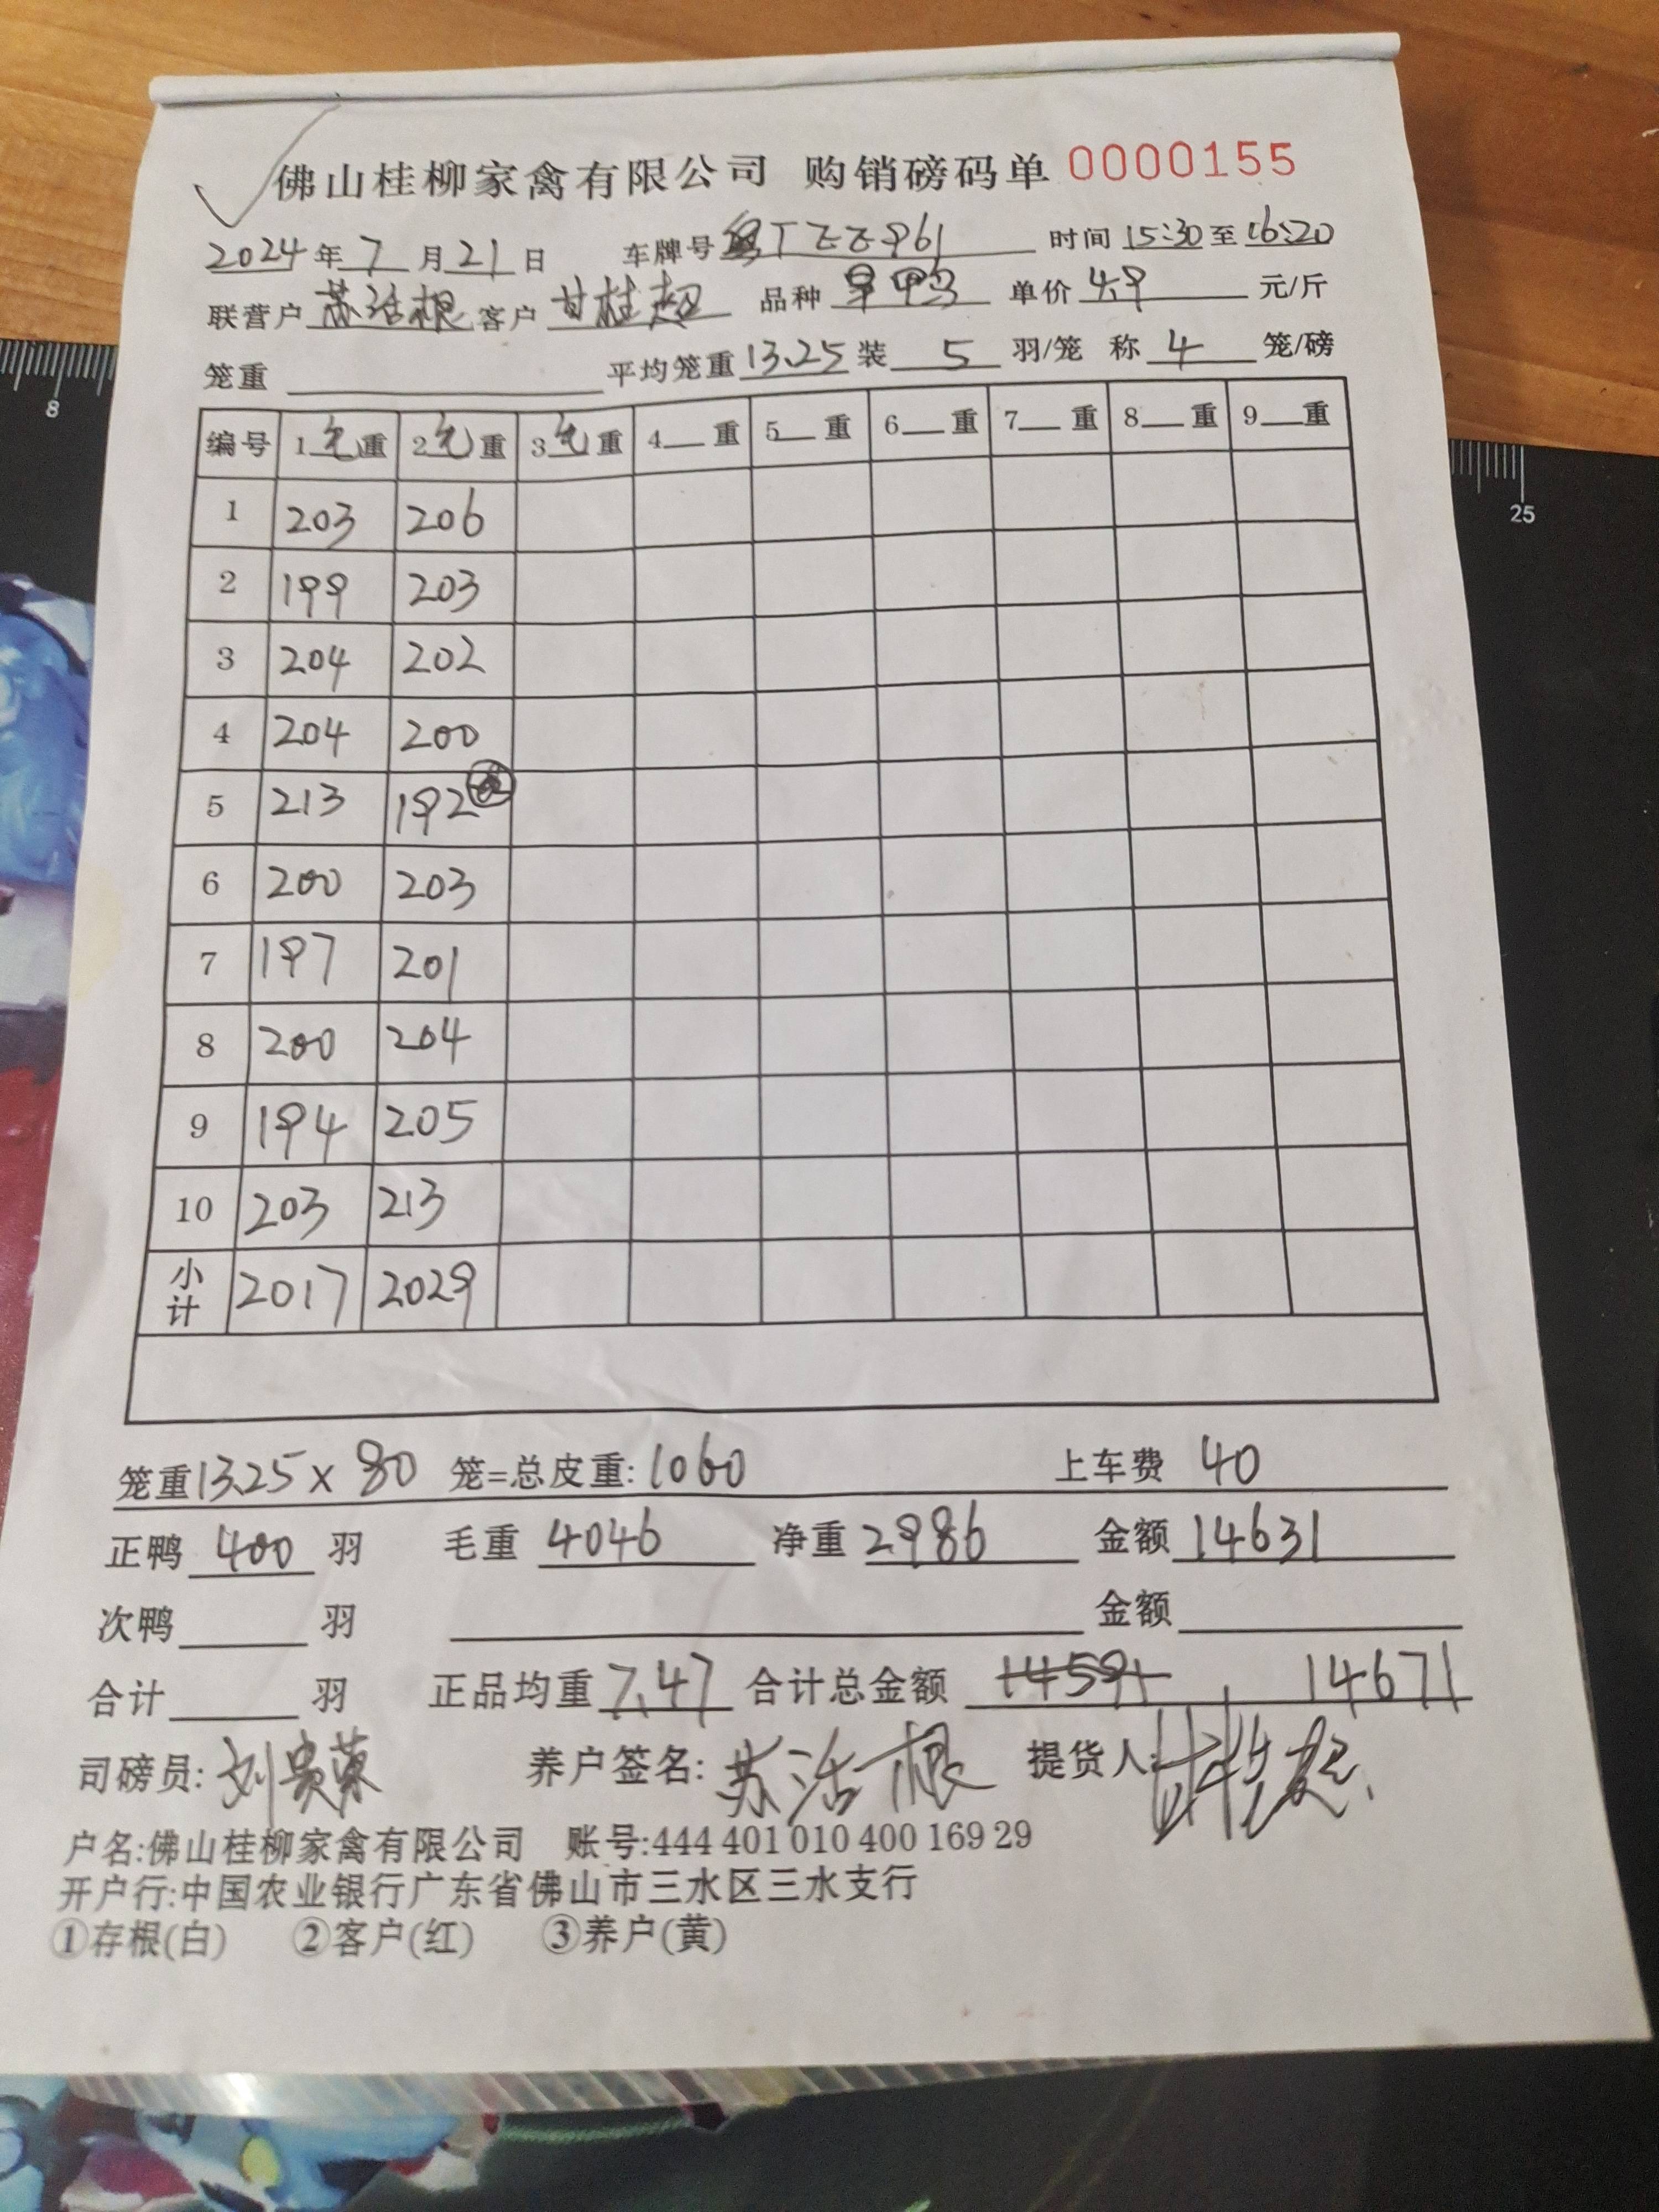 佛山桂柳家禽有限公司 购销磅码单 0000155
2024年7月21日 车牌号粤TZZ961 时间15:30至16:20
联营户苏活根 客户甘桂超 品种旱鸭 单价4.9元/斤
笼重 平均笼重13.25装5羽/笼 称4笼/磅
编号 1毛重 2毛重 3毛重 4重 5重 6重 7重 8重 9重
1 203 206
2 199 203
3 204 202
4 204 200
5 213 192
6 200 203
7 197 201
8 200 204
9 194 205
10 203 213
小计 2017 2029
笼重13.25×80 笼=总皮重:1060 上车费 40
正鸭400羽 毛重4046 净重2986 金额14631
次鸭 羽 金额
合计 羽 正品均重7.47 合计总金额 14591 14671
司磅员: 养户签名:苏活根 提货人:甘桂超
户名:佛山桂柳家禽有限公司 账号:444 401 010 400 169 29
开户行:中国农业银行广东省佛山市三水区三水支行
①存根(白) ②客户(红) ③养户(黄)
8
25